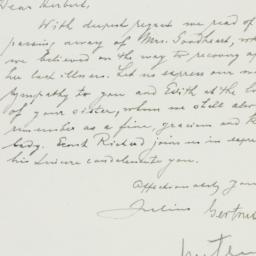 Dear Herbert,
With deepest regret we read of
passing away of Mrs.
we believed on the way to recovery
her last illness. Let us express our
sympathy to you and Edith at the lo
of your sister, whom we shall alw
remember as a fine, gracious and
lady. Ernst Richard joins us in expre
his sincere condolence to you.
Affectionately you
Julius Gertrud